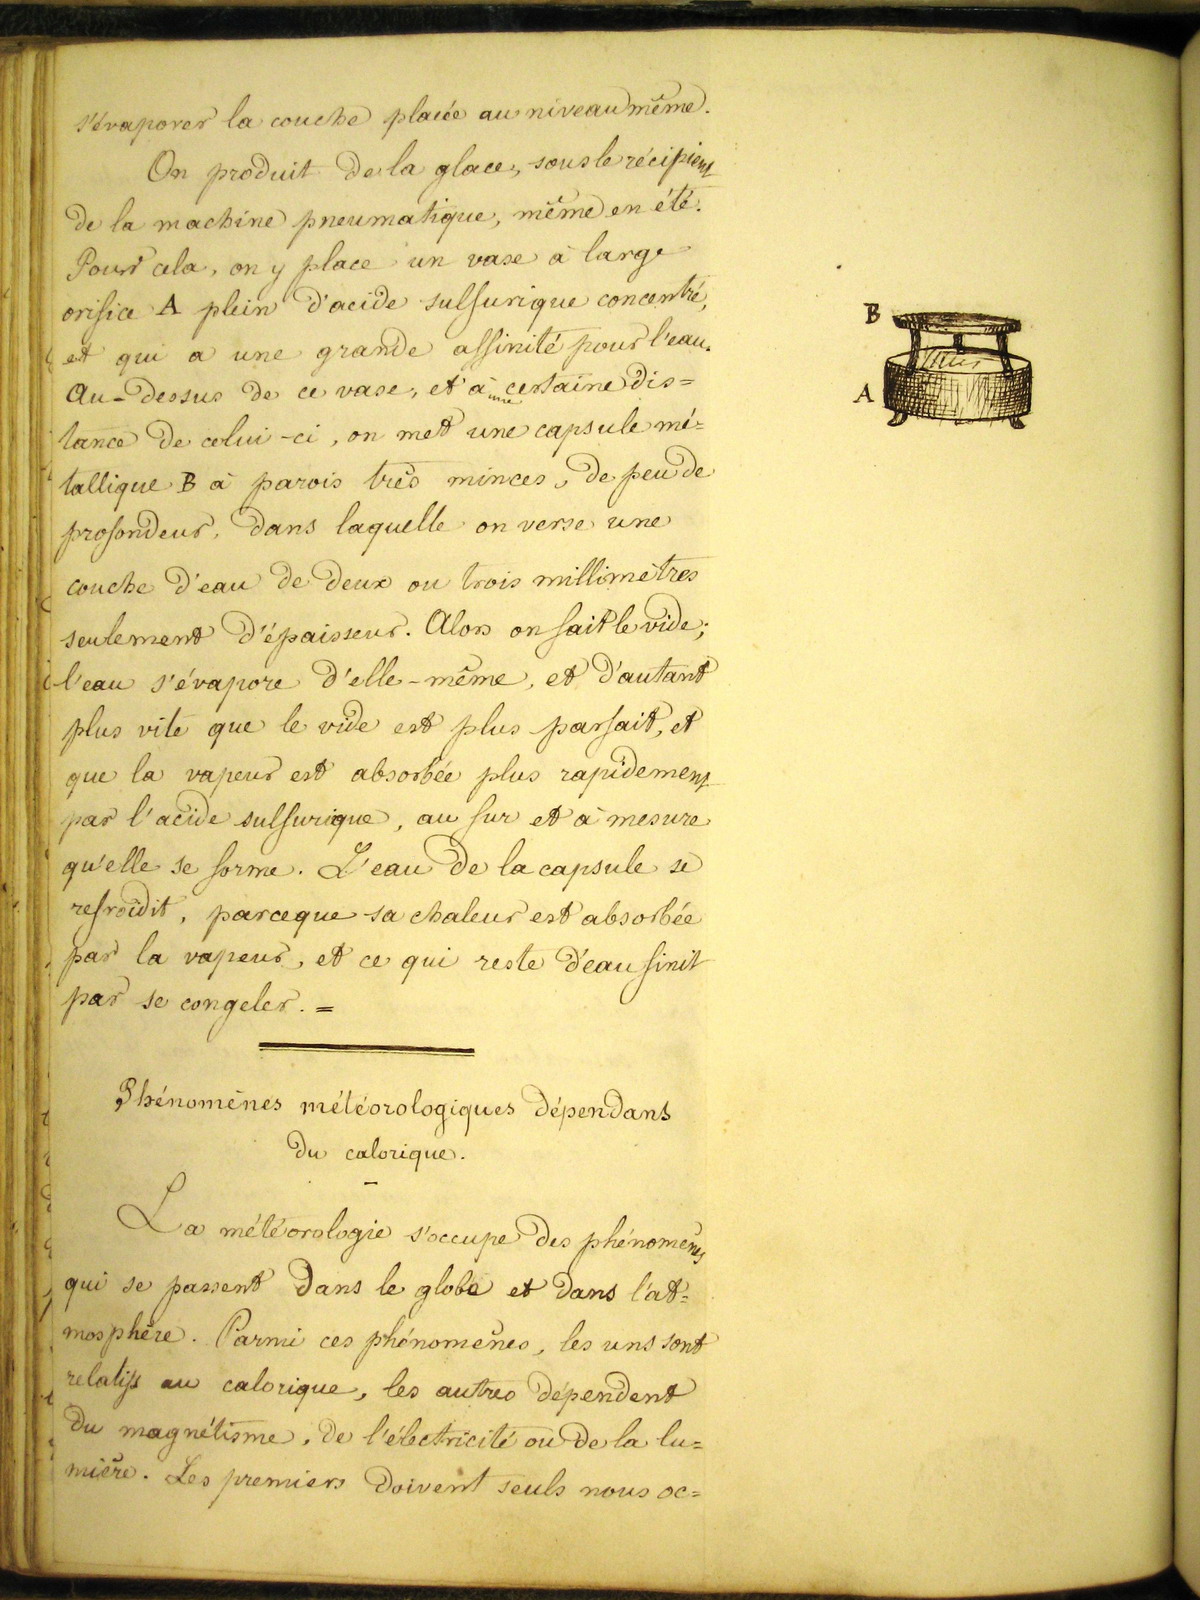 s'évaporer la couche placée au niveau même.
On produit de la glace, sous le récipient
de la machine pneumatique, même en été.
Pour cela, on y place un vase à large
orifice A plein d'acide sulfurique concentré,
et qui a une grande affinité pour l'eau.
Au-dessus de ce vase, et à une certaine dis=
tance de celui-ci, on met une capsule mé=
tallique B à parois très minces, de peu de
profondeur, dans laquelle on verse une
couche d'eau de deux ou trois millimètres
seulement d'épaisseur. Alors on fait le vide;
l'eau s'évapore d'elle-même, et d'autant
plus vite que le vide est plus parfait, et
que la vapeur est absorbée plus rapidement
par l'acide sulfurique, au fur et à mesure
qu'elle se forme. L'eau de la capsule se
refroidit, parceque sa chaleur est absorbée
par la vapeur, et ce qui reste d'eau finit
par se congeler. =
Phénomènes météorologiques dépendans
du calorique.
La météorologie s'occupe des phénomènes
qui se passent dans le globe et dans l'at=
mosphère. Parmi ces phénomènes, les uns sont
relatifs au calorique, les autres dépendent
du magnétisme, de l'électricité ou de la lu=
mière. Les premiers doivent seuls nous oc=
B
A